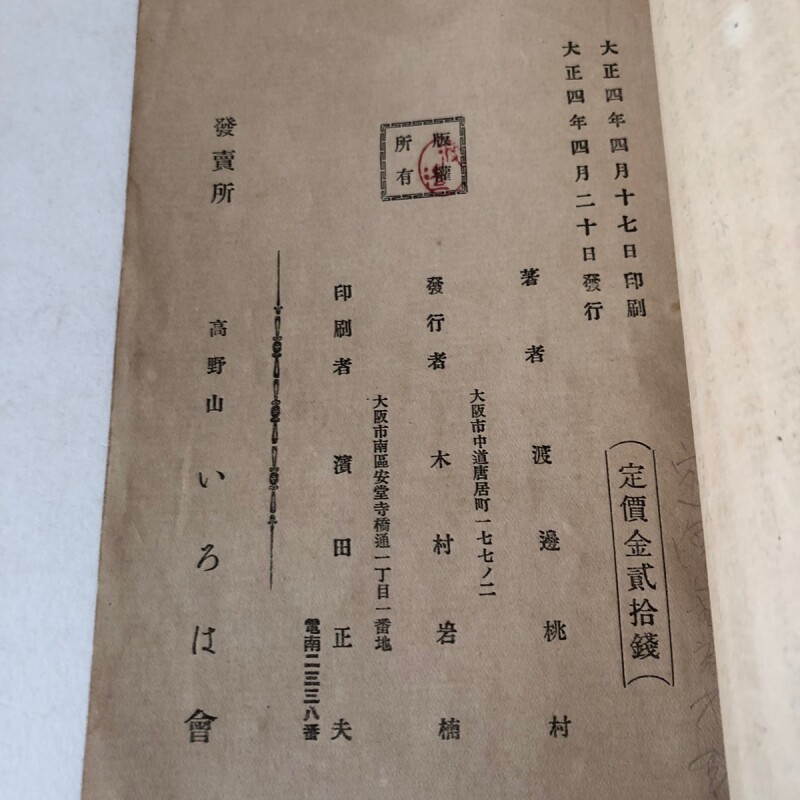 大正四年四月十七日印刷
大正四年四月二十日發行
定價金貳拾錢
版權
所有
著者 渡邊桃村
大阪市中道唐居町一七七ノ二
發行者 木村岩楠
大阪市南區安堂寺橋通一丁目一番地
印刷者 濱田正夫
電南二三三八番
發賣所 高野山いろは會